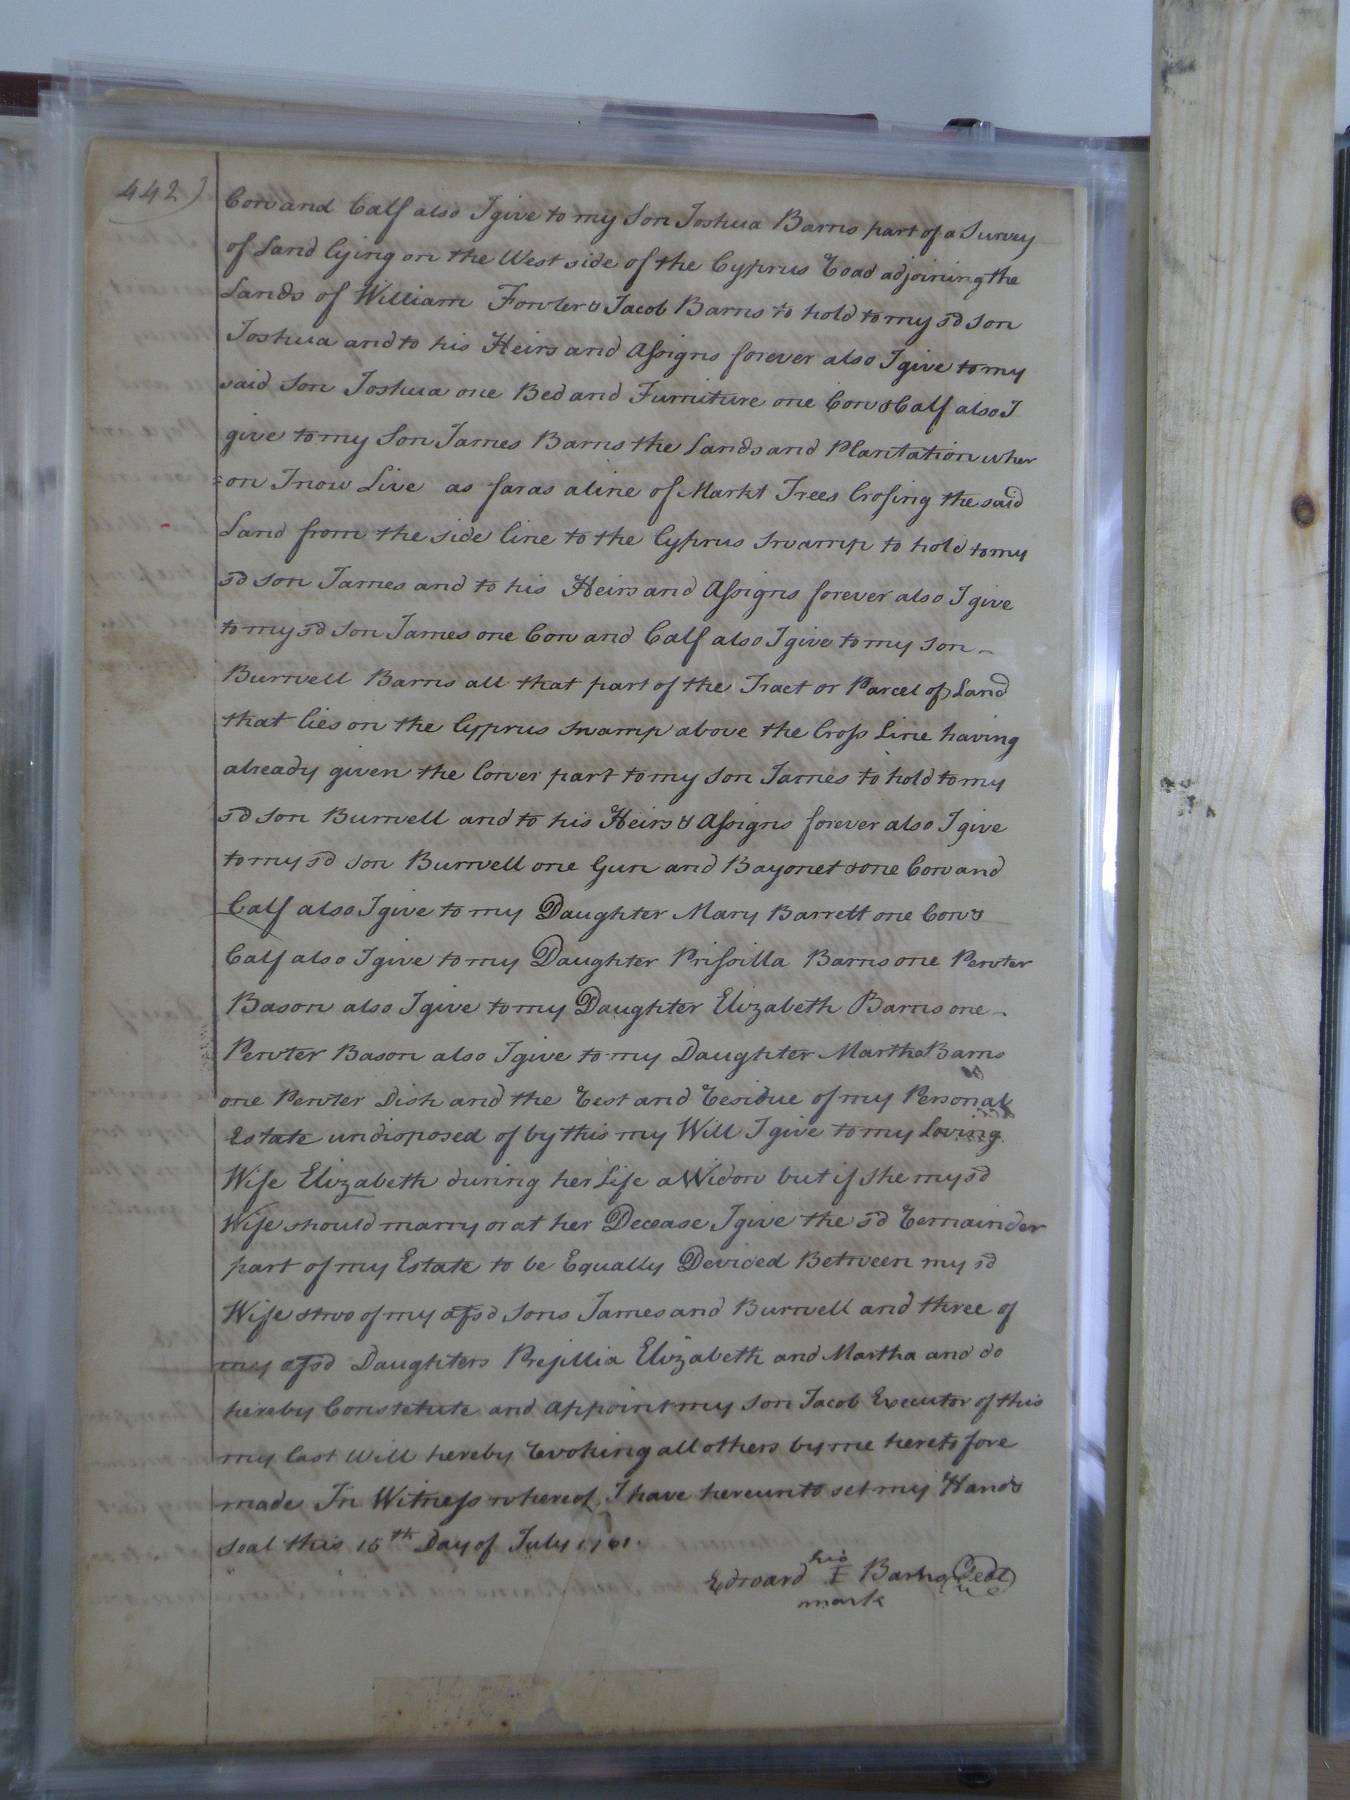 442)
Cow and Calf also I give to my Son Joshua Barns part of a Survey
of Land lying on the West side of the Cyprus Road adjoining the
Lands of William Fowler & Jacob Barns to hold to my sd son
Joshua and to his Heirs and Assigns forever also I give to my
said Son Joshua one Bed and Furniture one Cow & Calf also I
give to my Son James Barns the Lands and Plantation wher
=on I now Live as far as a line of Markt Trees Crossing the said
Land from the side line to the Cyprus Swamp to hold to my
sd son James and to his Heirs and Assigns forever also I give
to my sd Son James one Cow and Calf also I give to my son
Burwell Barns all that part of the Tract or Parcel of Land
that lies on the Cyprus Swamp above the Cross Line having
already given the lower part to my son James to hold to my
sd son Burwell and to his Heirs & Assigns forever also I give
to my sd son Burwell one Gun and Bayonet & one Cow and
Calf also I give to my Daughter Mary Barrett one Cow &
Calf also I give to my Daughter Prissilla Barns one Pewter
Bason also I give to my Daughter Elizabeth Barns one
Pewter Bason also I give to my Daughter Martha Barns
one Pewter Dish and the Rest and Residue of my Personal
Estate undisposed of by this my Will I give to my Loving
Wife Elizabeth during her Life a Widow but if She my sd
Wife should marry or at her Decease I give the sd Remainder
part of my Estate to be Equally Devided Between my sd
Wife & two of my afsd Sons James and Burwell and three of
my afsd Daughters Presillia Elizabeth and Martha and do
hereby Constetute and appoint my Son Jacob Executor of this
my last Will hereby Revoking all others by me heretofore
made In Witness whereof I have hereunto set my Hand &
seal this 15th Day of July 1761.
his
Edward I Barns Seal
mark